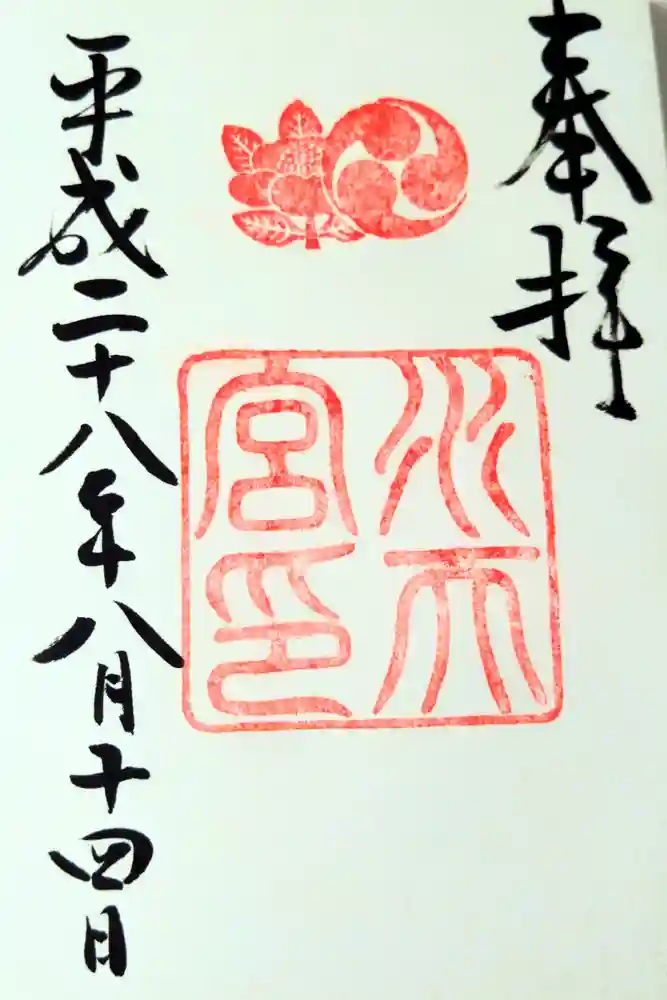 奉拝
水天
宮印
平成二十八年八月十四日